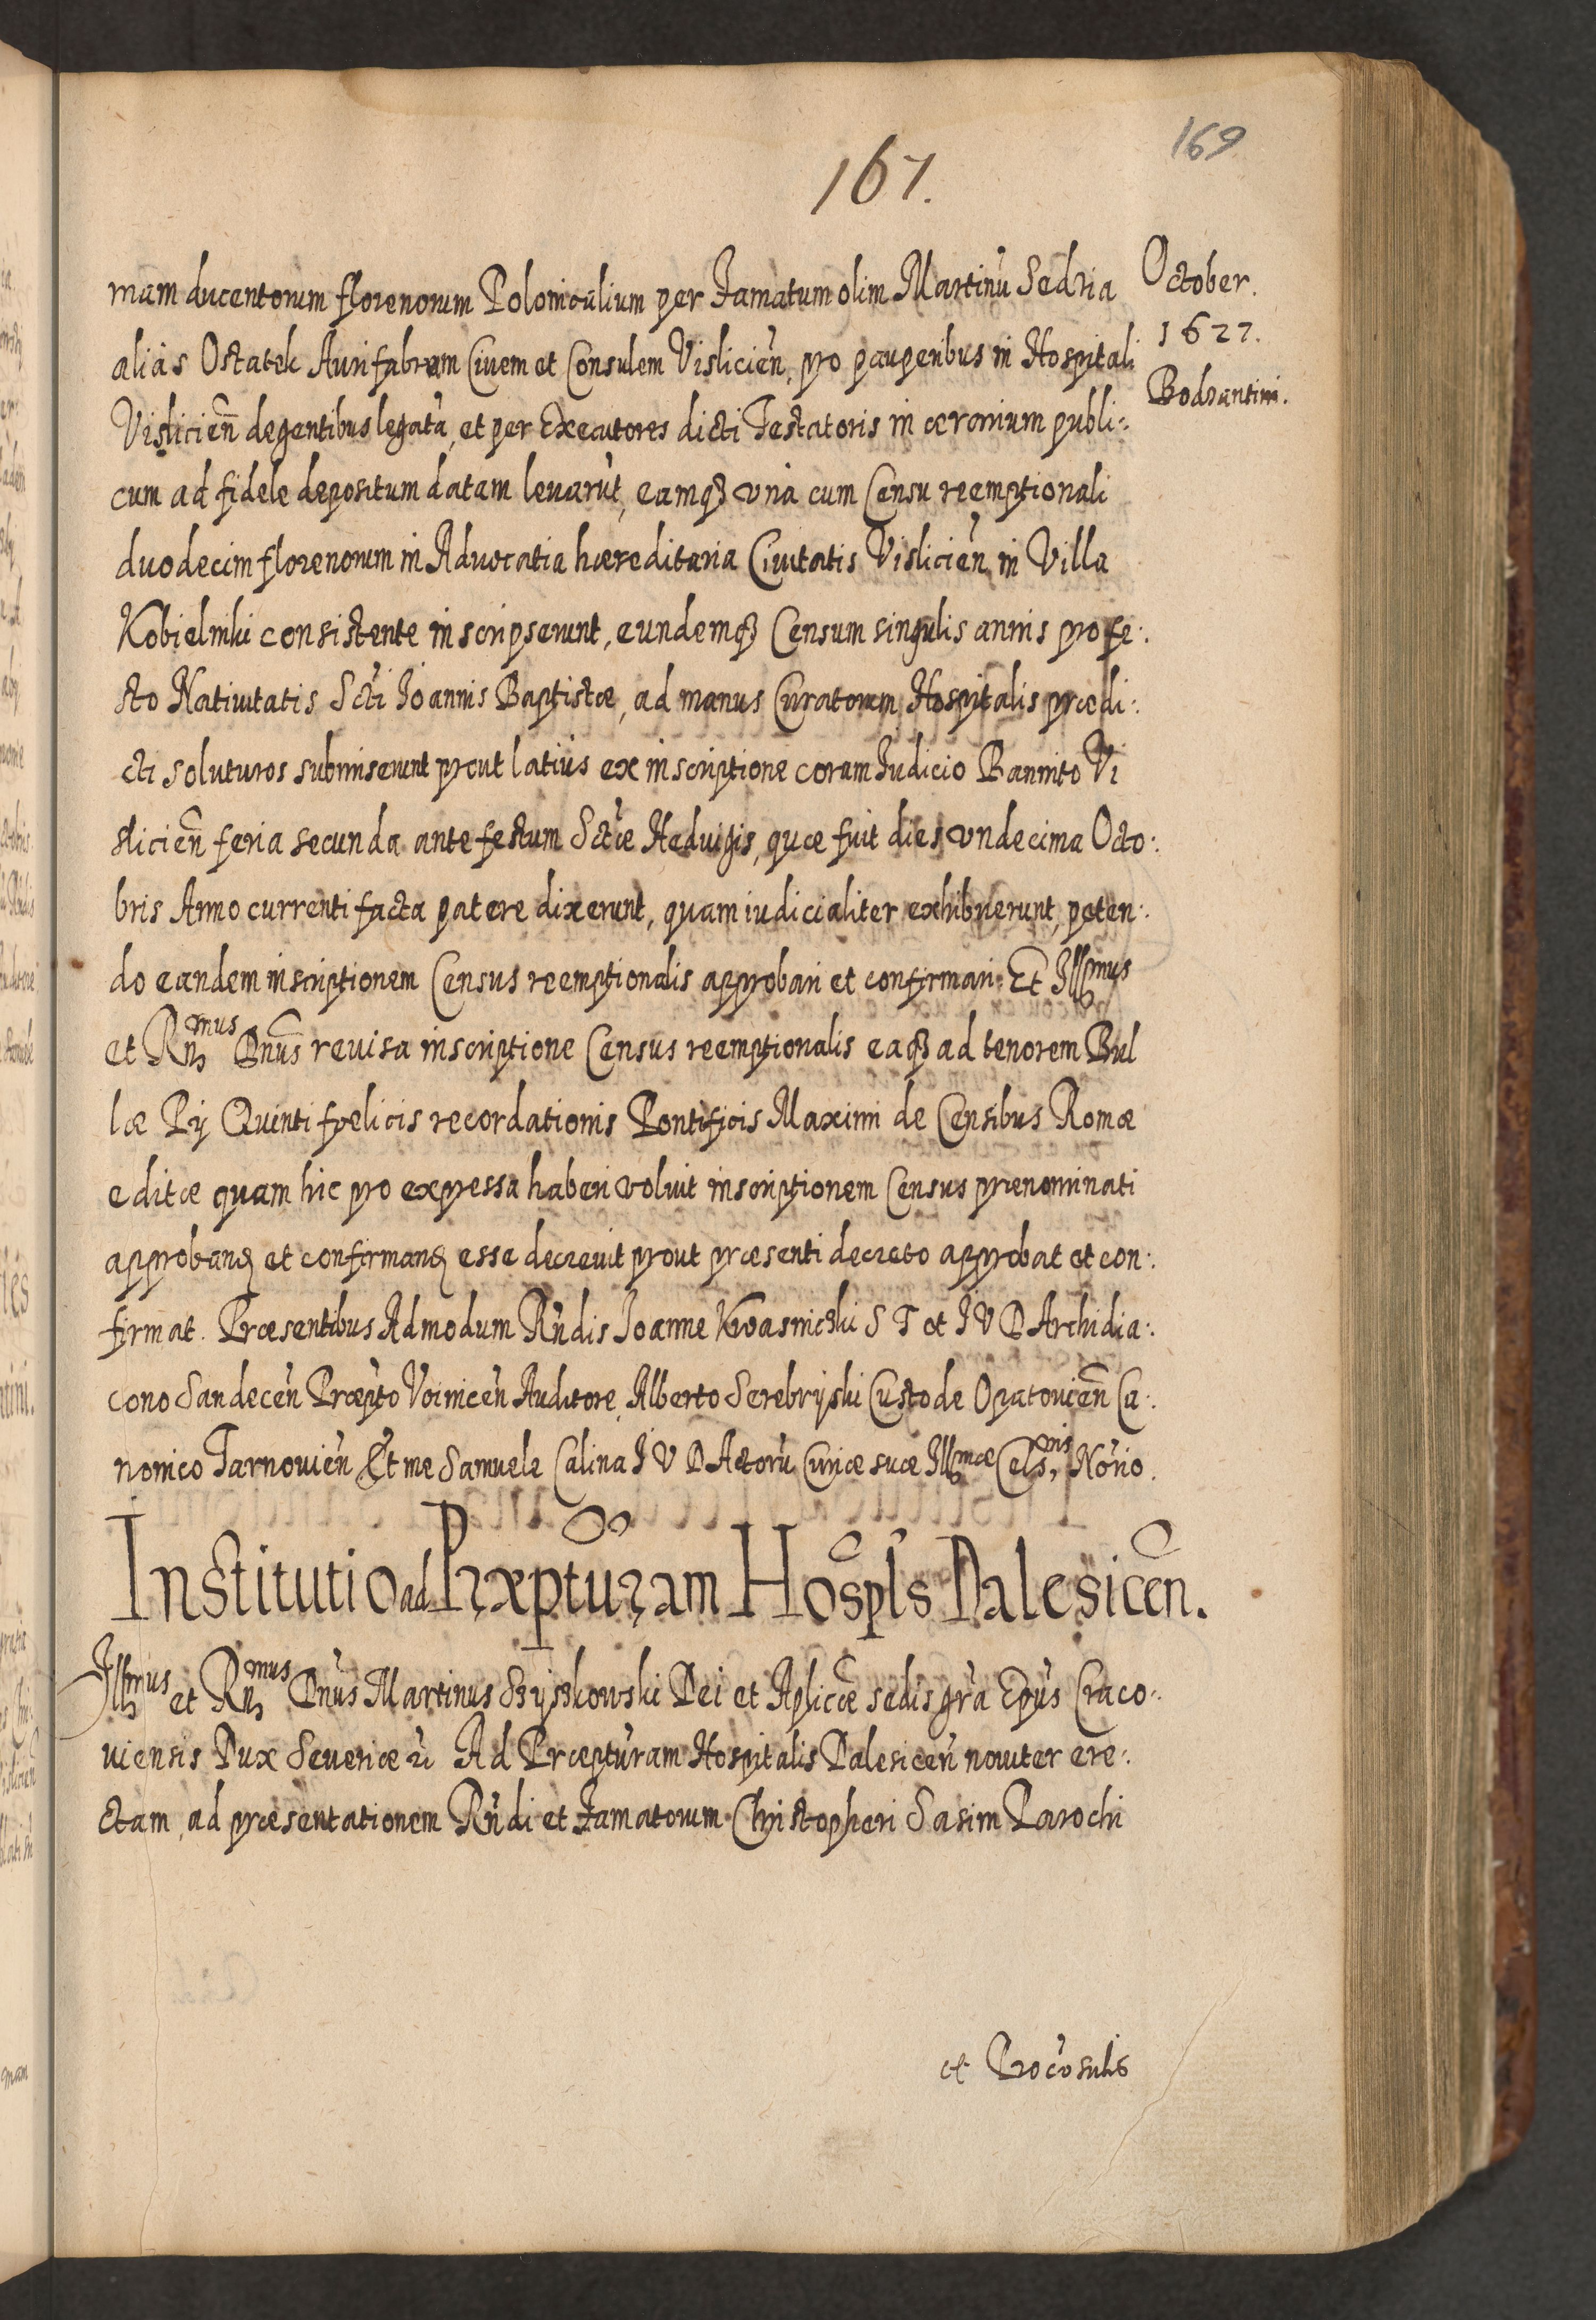 169
167.
October.
1627.
Bodzantini.
mam ducentorum florenorum Polonicalium per Famatum olim Martinũ Sedzia
aliàs Ostatek Aurifabrum Ciuem et Consulem Vislicien̄, pro pauperibus in Hospitali
Vislicien̄ degentibus legatã, et per Executores dicti Testatoris in ærarium publi:
cum ad fidele depositum datam leuarũt, eamqꝫ vnà cum Censu reemptionali
duodecim florenorum in Aduocatia hæreditaria Ciuitatis Vislicien̄ in Villa
Kobielniki consistente inscripserunt, eundemqꝫ Censum singulis annis pro fe:
sto Natiuitatis Scti Ioannis Baptistæ, ad manus Curatorum Hospitalis prædi:
cti soluturos submiserunt prout latiùs ex inscriptione coram Iudicio Bannito Vi
slicien̄ feria secunda ante festum Sctæ Heduigis, quæ fuit dies vndecima Octo:
bris Anno currenti facta patere dixerunt, quam iudicialiter exhibuerunt, peten:
do eandem inscriptionem Census reemptionalis approbari et confirmari. Et Illmus
et Rn̄mus Dn̄us reuisa inscriptione Census reemptionalis eaqꝫ ad tenorem Bul
læ Pij Quinti fœlicis recordationis Pontificis Maximi de Censibus Romæ
editæ quam hic pro expressa haberi voluit inscriptionem Census prænominati
approband et confirmand esse decreuit prout præsenti decreto approbat et con:
firmat. Præsentibus Admodum Rn̄dis Ioanne Kwasniczki S T et I V D Archidia:
cono Sandecen̄ Præpto Voinicen̄ Auditore, Alberto Serebryski Custode Opatouien̄ Ca:
nonico Tarnouien̄ Et me Samuele Calina I V D Actorũ Curiæ suæ Illmæ Celsnis Nõrio.
Institutio ad Præpturam Hospls Dalesicen̄.
Illmus et Rn̄mus Dn̄us Martinus Szyszkowski Dei et Aplicæ sedis gr̃a Ep̃us Craco:
uiensis Dux Seueriæ ꝛc Ad Præpturam Hospitalis Dalesicen̄ nouiter ere:
ctam, ad præsentationem Rn̄di et Famatorum Christopheri Sasim Parochi
et Procõsulis